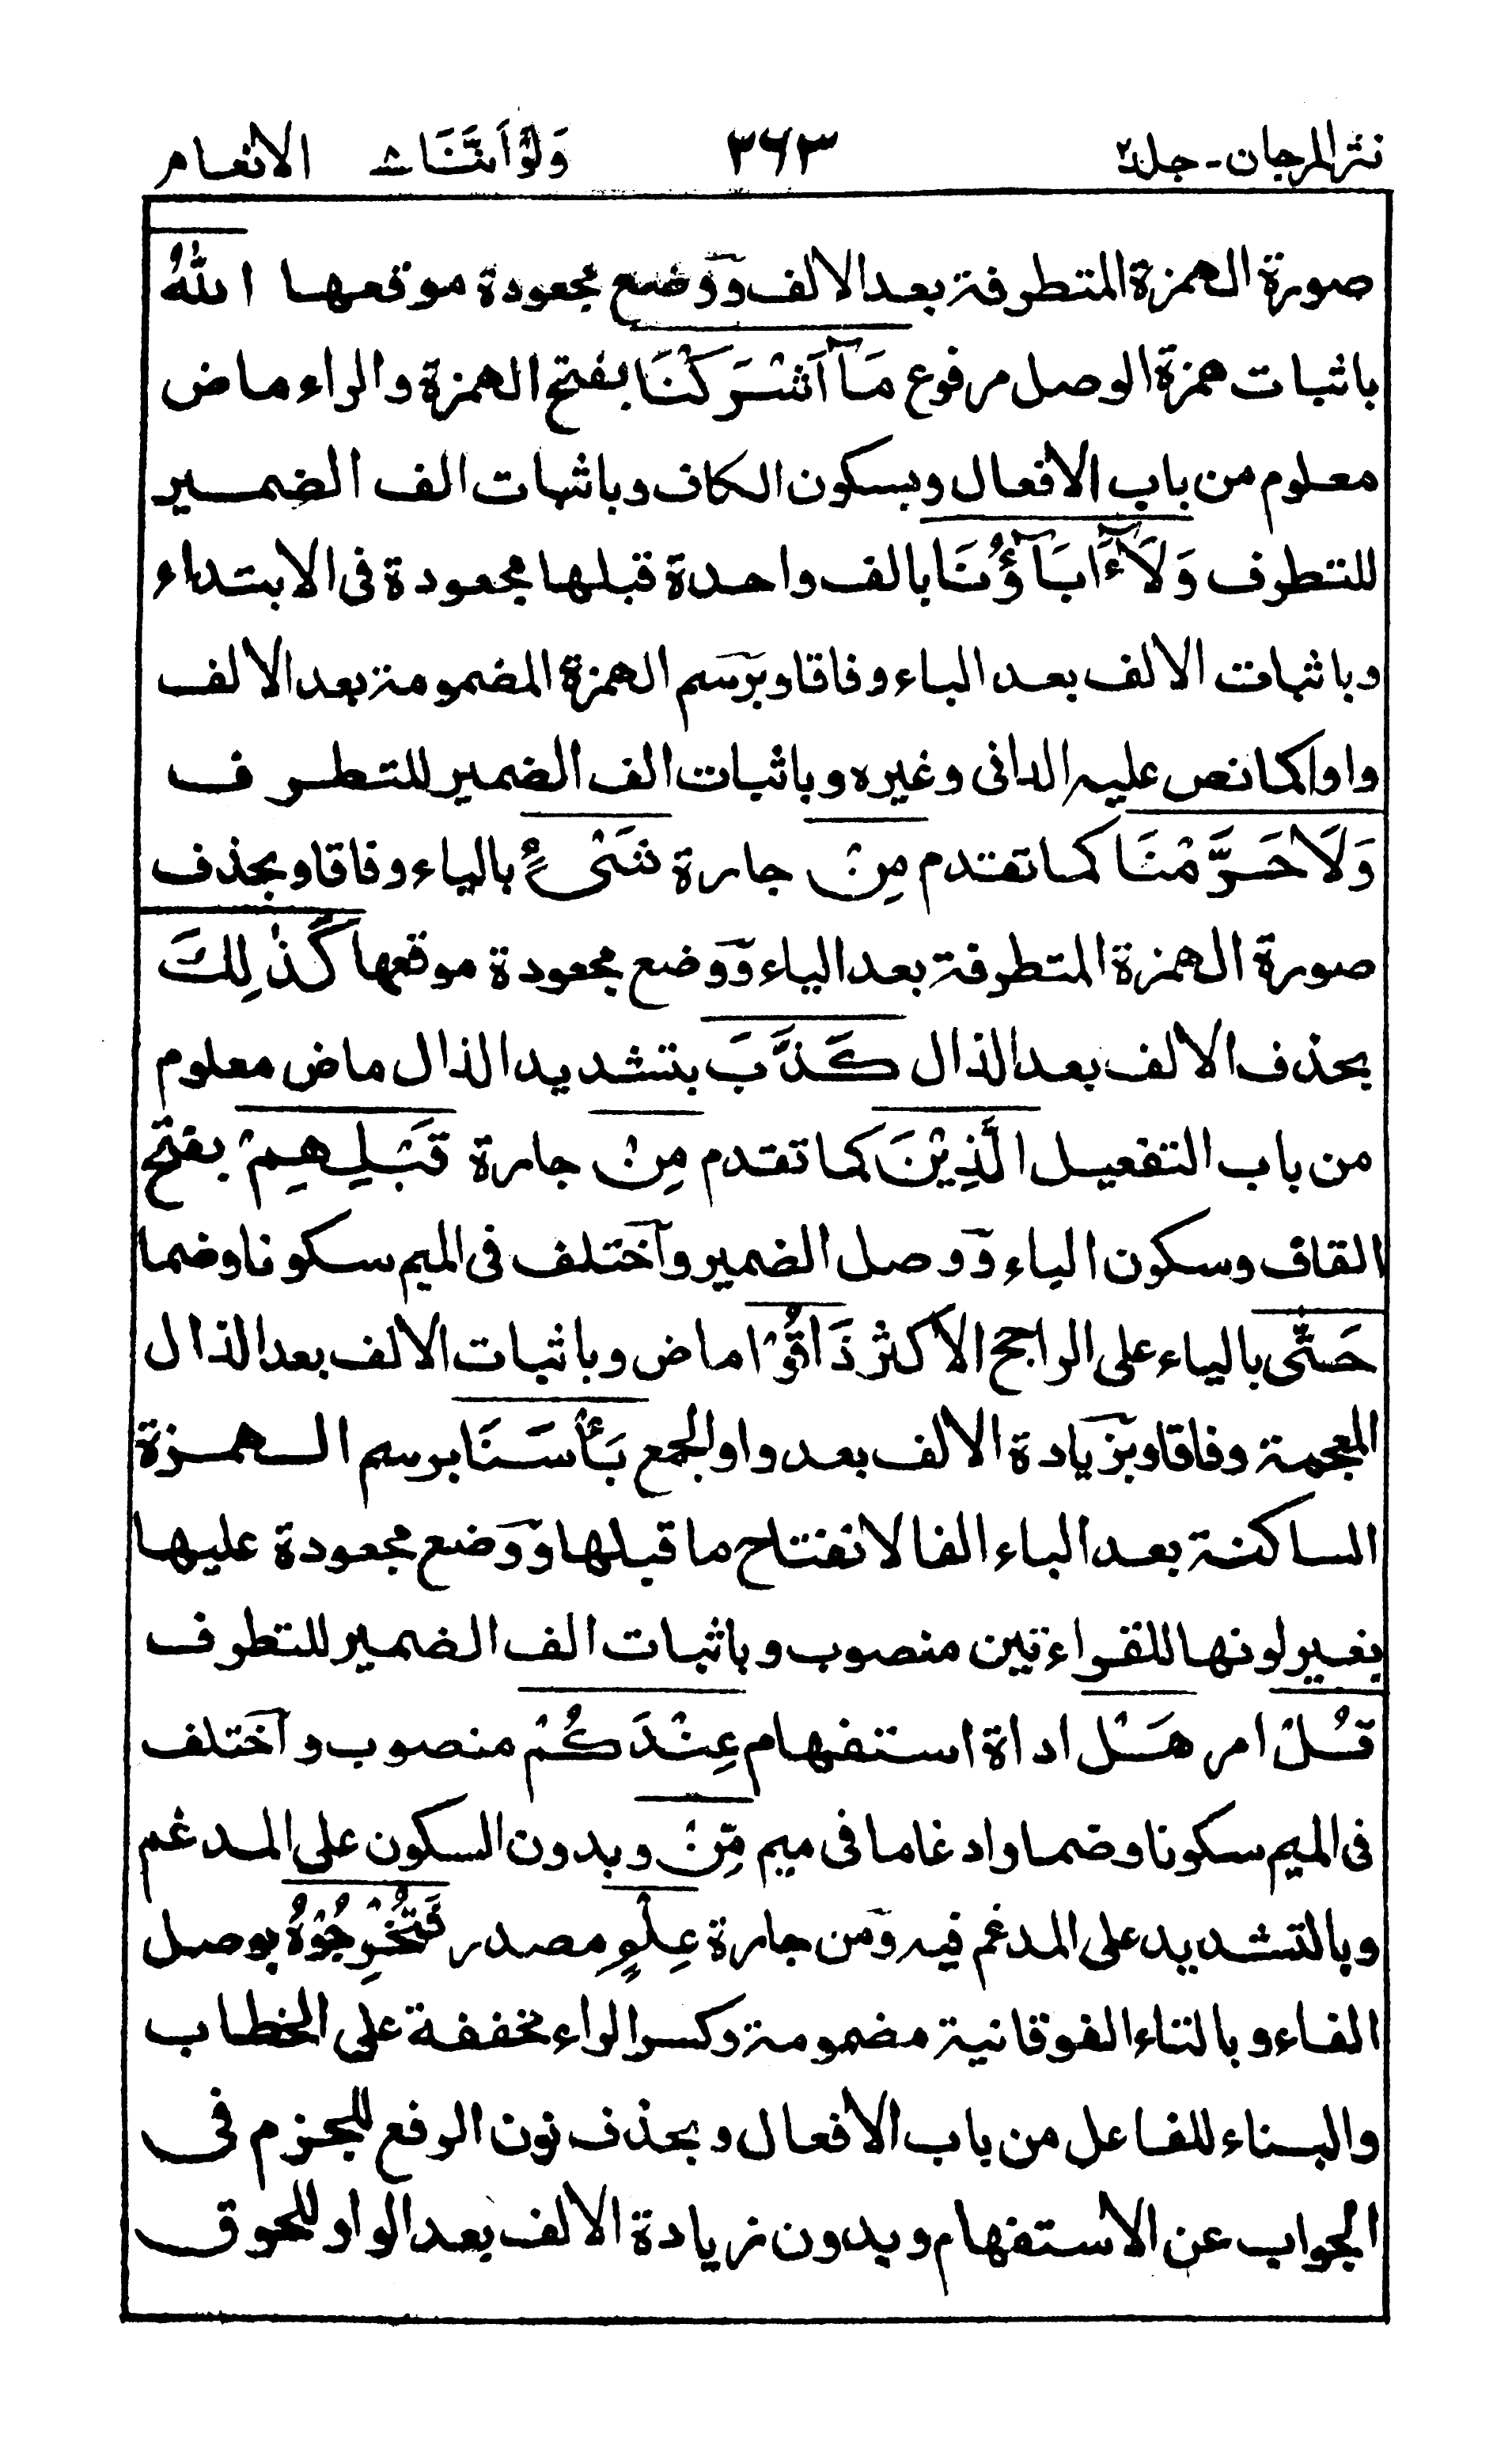 نثر المرجان - جلد٢ ٣٦٣ وَلَوْ اَنَّنَا ٨ الانعام
صورة الهمزة المتطرفة بعد الالف ووضع مجعودة موقعها اللهُ
باثبات همزة الوصل مرفوع مَآ اَشْرَكْنَا بفتح الهمزة والراء ماض
معلوم من باب الافعال وبسكون الكاف وباثبات الف الضمير
للتطرف وَلَآ ءَابَآؤُنَا بالف واحدة قبلها مجعودة فى الابتداء
وباثبات الالف بعد الباء وفاقا وبرسم الهمزة المضمومة بعد الالف
واوا كما نص عليه الدانى وغيره وباثبات الف الضمير للتطرف
وَلَا حَرَّمْنَا كما تقدم مِنْ جارة شَىْءٍ بالياء وفاقا وبحذف
صورة الهمزة المتطرفة بعد الياء ووضع مجعودة موقعها كَذٰلِكَ
بحذف الالف بعد الذال كَذَّبَ بتشديد الذال ماض معلوم
من باب التفعيل الَّذِيْنَ كما تقدم مِنْ جارة قَبْلِهِمْ بفتح
القاف وسكون الباء ووصل الضمير واختلف فى الميم سكونا وضما
حَتّٰى بالياء على الراجح الاكثر ذَاقُوْا ماض وباثبات الالف بعد الذال
المعجمة وفاقا وبزيادة الالف بعد واو الجمع بَأْسَنَا برسم الهمزة
الساكنة بعد الباء الفا لانفتاح ما قبلها ووضع مجعودة عليها
بغير لونها للقراءتين منصوب وباثبات الف الضمير للتطرف
قُلْ امر هَلْ اداة استفهام عِنْدَكُمْ منصوب واختلف
فى الميم سكونا وضما وادغاما فى ميم مِّنْ وبدون السكون على المدغم
وبالتشديد على المدغم فيه ومن جارة عِلْمٍ مصدر فَتُخْرِجُوْهُ بوصل
الفاء وبالتاء الفوقانية مضمومة وكسر الراء مخففة على الخطاب
والبناء للفاعل من باب الافعال وبحذف نون الرفع للجزم فى
الجواب عن الاستفهام وبدون زيادة الالف بعد الواو للحوق